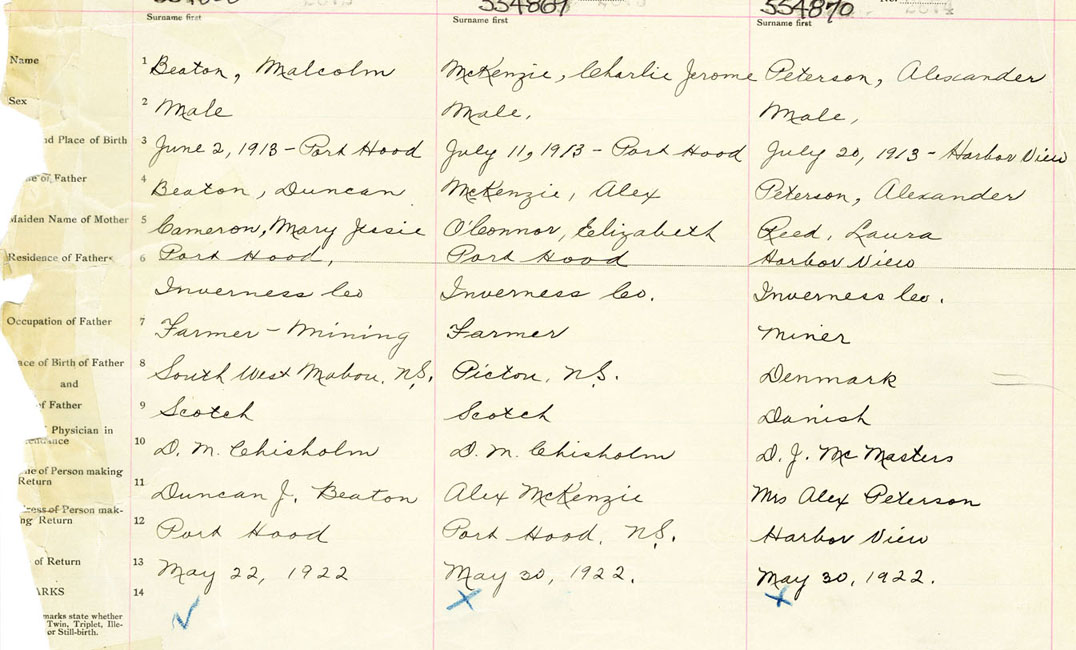 554869 554870
Surname first Surname first Surname first
Name 1 Beaton, Malcolm McKenzie, Charlie Jerome Peterson, Alexander
Sex 2 Male Male, Male,
nd Place of Birth 3 June 2, 1913 - Port Hood July 11, 1913 - Port Hood July 20, 1913 - Harbor View
of Father 4 Beaton, Duncan McKenzie, Alex Peterson, Alexander
Maiden Name of Mother 5 Cameron, Mary Jessie O'Connor, Elizabeth Reed, Laura
Residence of Father 6 Port Hood, Port Hood Harbor View
Inverness Co Inverness Co. Inverness Co.
Occupation of Father 7 Farmer - Mining Farmer Miner
ace of Birth of Father 8 South West Mabou, N.S. Pictou, N.S. Denmark
and
of Father 9 Scotch Scotch Danish
Physician in
10 D. M. Chisholm D. M. Chisholm D. J. Mc Masters
ne of Person making
Return 11 Duncan J. Beaton Alex McKenzie Mrs Alex Peterson
ress of Person mak-
ng Return 12 Port Hood Port Hood, N.S. Harbor View
of Return 13 May 22, 1922 May 30, 1922. May 30, 1922.
ARKS 14
marks state whether
Twin, Triplet, Ille-
or Still-birth.